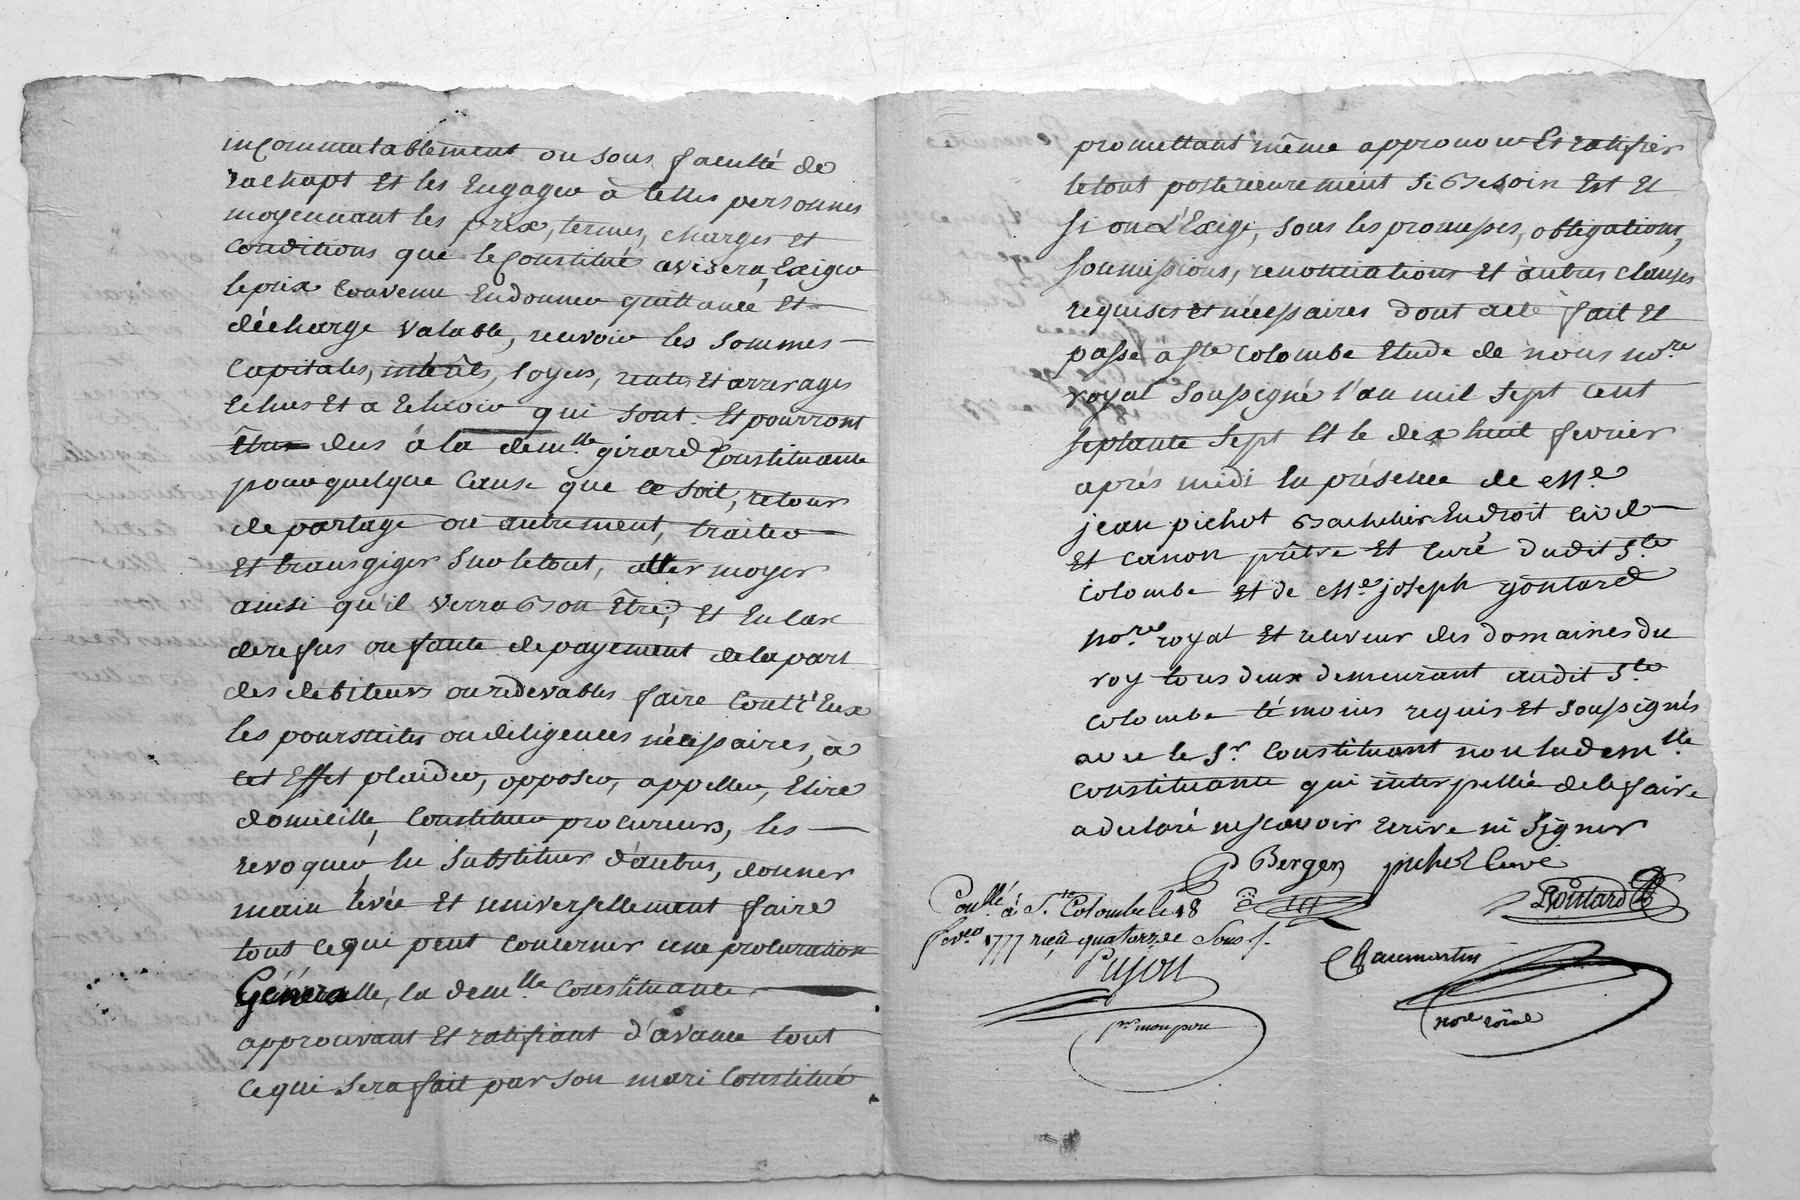 incommutablement ou sous faculté de
rachapt Et les Engager à telles personnes
moyennant les prix, termes, charges Et
conditions que le Constitué avisera, Exiger
le prix Convenu En donner quittance Et
décharge valable, recevoir les sommes
Capitales, intérêts, loyers, rentes Et arrerages
Echus Et a Echeoir qui sont Et pourront
Être dus à la dem.lle girard Constituante
pour quelque Cause que ce soit, retour
de partage ou autrement, traiter
Et transgiger Sur le tout, aller moyer
ainsi qu'il verra Bon Être, Et En Cas
de refus ou faute de payement de la part
des debiteurs ou redevables faire Contr'Eux
les poursuites ou diligences nécéssaires, à
cet Effet plaider, opposer, appeller, Elire
domicille, Constituer procureurs, les
revoquer, En Substituer d'autres, donner
main levée Et universellement faire
tout ce qui peut Concerner une procuration
Généralle, la dem.lle Constituante
approuvant Et ratifiant d'avance tout
ce qui Sera fait par son mari Constitué
promettant même approuver Et ratifier
le tout posterieurement Si Besoin Est Et
Si on L'Exige, sous les promesses, obligations,
soumissions, renonciations Et autres clauses
requises Et nécéssaires dont acte fait Et
passé à Ste Colombe Etude de nous no.re
royal Soussigné l'an mil Sept Cent
septante Sept Et le dix huit fevrier
après midi En présence de Me
jean pichot Bachelier En droit Civil
Et Canon prêtre Et Curé dudit Ste
Colombe Et de Me joseph gontard
no.re royal Et receveur des domaines du
roy tous deux demeurant audit Ste
Colombe témoins requis Et Soussignés
avec le Sr Constituant non la dem.lle
Constituante qui interpellée de le faire
a declaré ne scavoir Ecrire ni Signer
P Berger pichot Curé
Gontard
Con.llé à S.te Colombe le 18
fevrer 1777 reçu quatorze Sous f.
Pujon
pr mon pere
Chaumartin
no.re roial